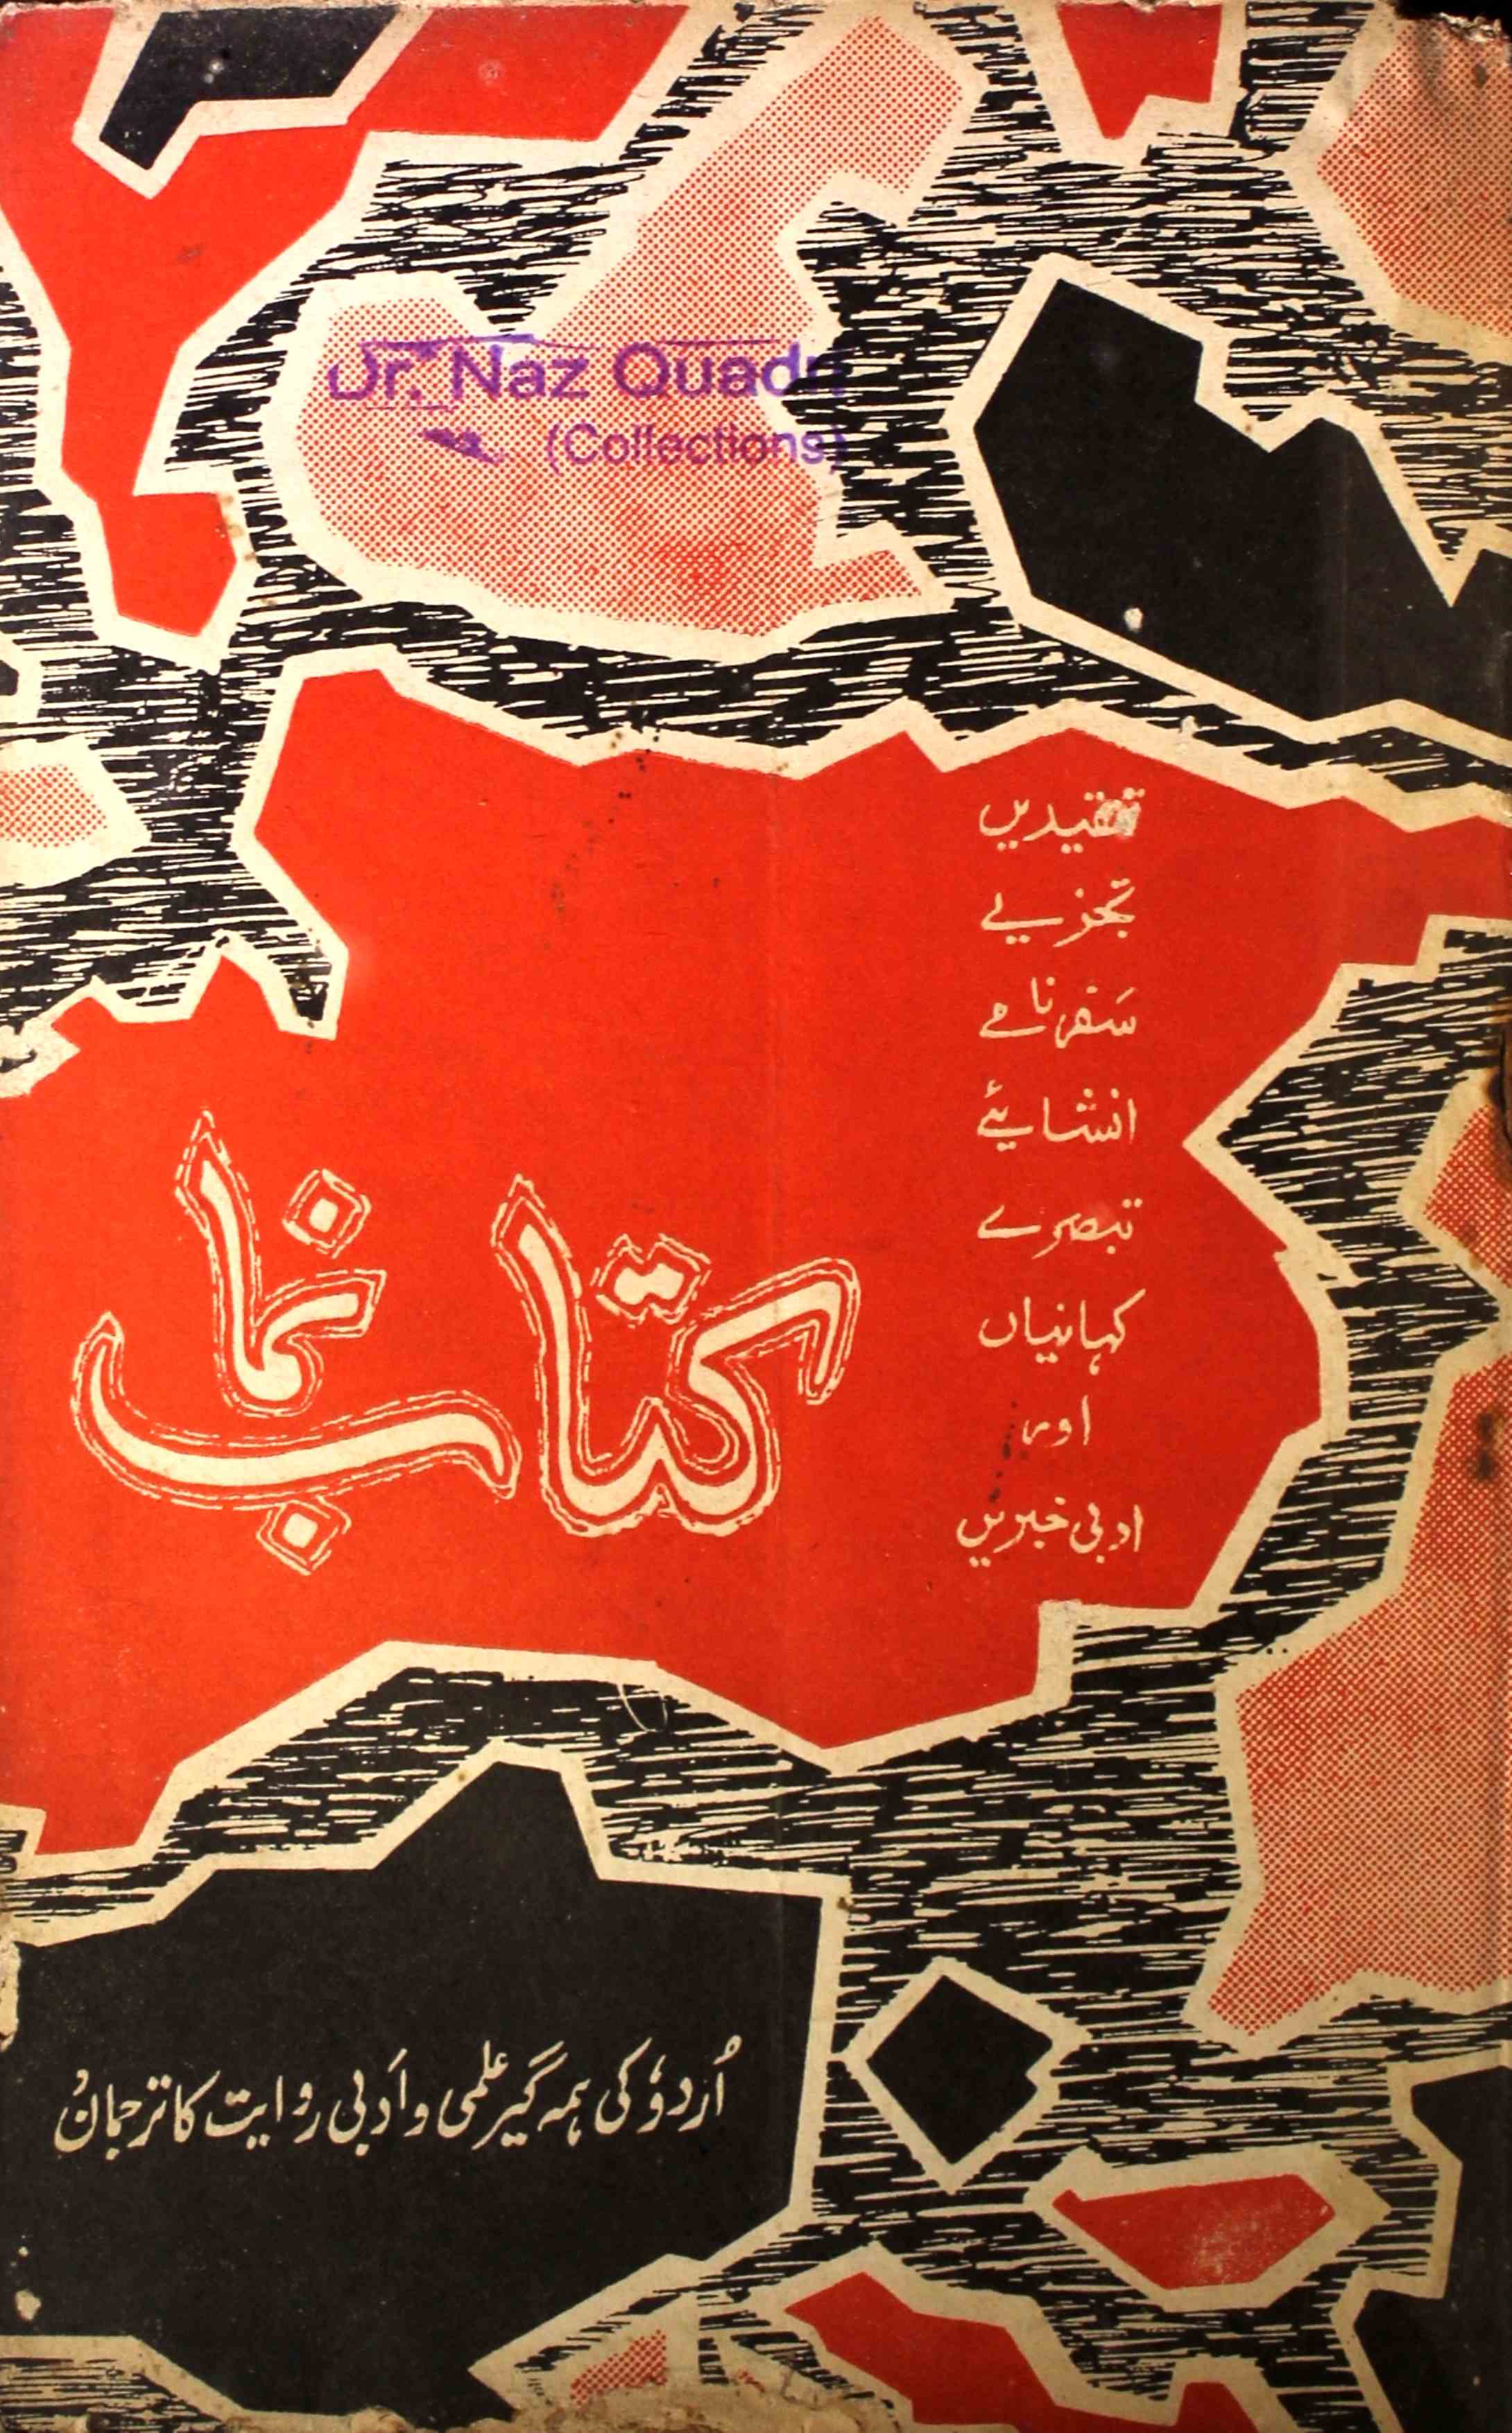 Dr. Naz Quadri
(Collections)
تنقیدیں
تجزیے
سفرنامے
انشائیے
تبصرے
کہانیاں
اور
ادبی خبریں
کتاب نما
اُردوٗ کی ہمہ گیر علمی و اَدبی روایت کا ترجمان